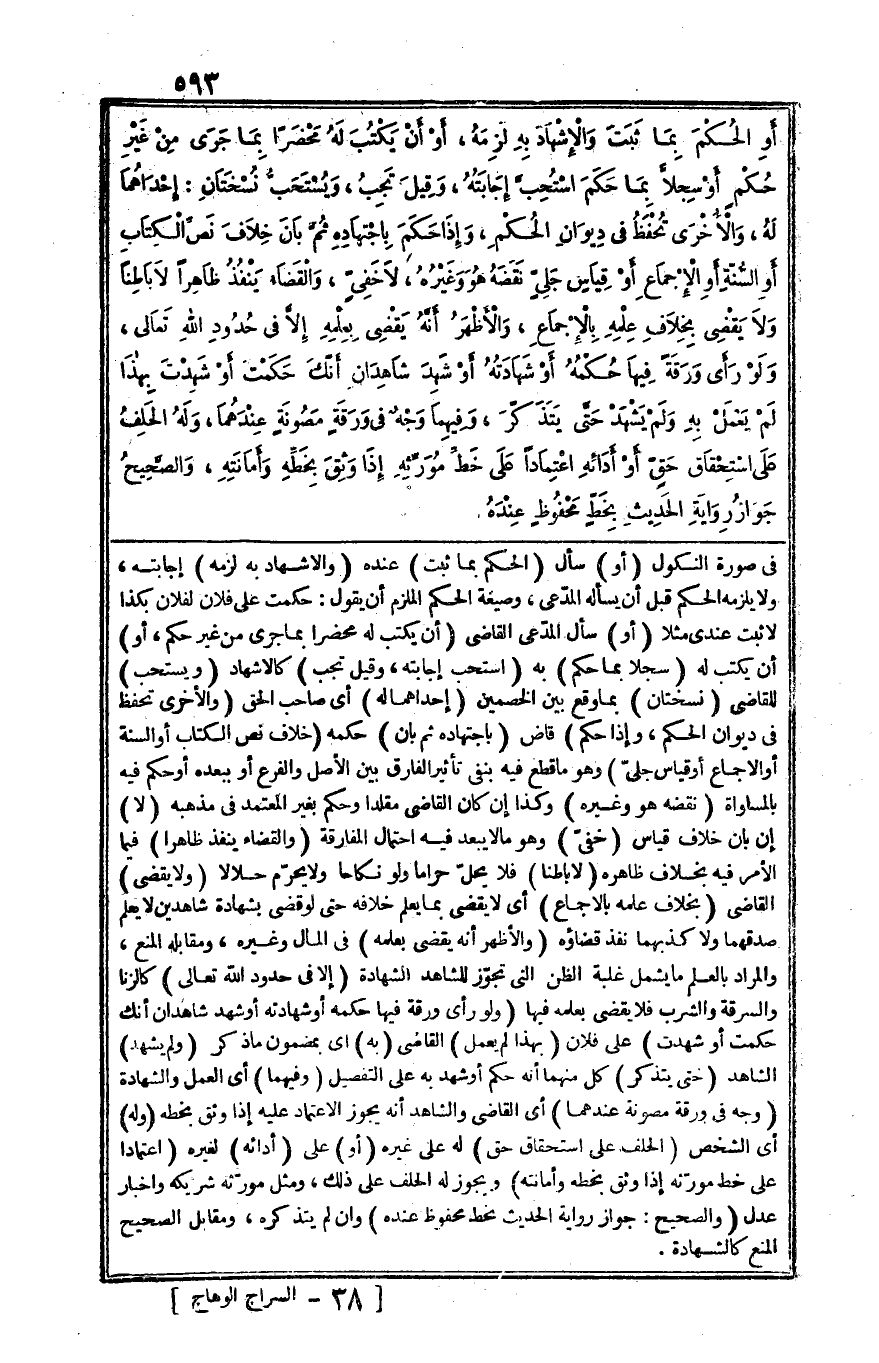 ٥٩٣
أَوِ الْحُكْمَ بِمَا ثَبَتَ وَالْإِشْهَادَ بِهِ لَزِمَهُ ، أَوْ أَنْ يَكْتُبَ لَهُ مَحْضَرًا بِمَا جَرَى مِنْ غَيْرِ
حُكْمٍ أَوْ سِجِلاًّ بِمَا حَكَمَ اسْتُحِبَّ إِجَابَتُهُ ، وَقِيلَ تَجِبُ ، وَيُسْتَحَبُّ نُسْخَتَانِ : إِحْدَاهُمَا
لَهُ ، وَالْأُخْرَى تُحْفَظُ فى دِيوَانِ الْحُكْمِ ، وَإِذَا حَكَمَ بِاجْتِهَادِهِ ثُمَّ بَانَ خِلَافَ نَصِّ الْكِتَابِ
أَوِ السُّنَّةِ أَوِ الْإِجْمَاعِ أَوْ قِيَاسٍ جَلِيٍّ نَقَضَهُ هُوَ وَغَيْرُهُ ، لَا خَفِيٍّ ، وَالْقَضَاءُ يَنْفُذُ ظَاهِراً لَا بَاطِنًا
وَلَا يَقْضِى بِخِلَافِ عِلْمِهِ بِالْإِجْمَاعِ ، وَالْأَظْهَرُ أَنَّهُ يَقْضِى بِعِلْمِهِ إِلاَّ فى حُدُودِ اللهِ تَعَالى ،
وَلَوْ رَأَى وَرَقَةً فِيهَا حُكْمُهُ أَوْ شَهَادَتُهُ أَوْ شَهِدَ شَاهِدَانِ أَنَّكَ حَكَمْتَ أَوْ شَهِدْتَ بِهٰذَا
لَمْ يَعْمَلْ بِهِ وَلَمْ يَشْهَدْ حَتَّى يَتَذَكَّرَ ، وَفِيهِمَا وَجْهٌ فى وَرَقَةٍ مَصُونَةٍ عِنْدَهُمَا ، وَلَهُ الْحَلِفُ
عَلَى اسْتِحْقَاقِ حَقٍّ أَوْ أَدَائِهِ اعْتِمَاداً عَلَى خَطِّ مُوَرِّثِهِ إِذَا وَثِقَ بِخَطِّهِ وَأَمَانَتِهِ ، وَالصَّحِيحُ
جَوَازُ رِوَايَةِ الْحَدِيثِ بِخَطٍّ مَحْفُوظٍ عِنْدَهُ .
فى صورة النكول (أو) سأل (الحكم بما ثبت) عنده (والاشهاد به لزمه) إجابته ،
ولا يلزمه الحكم قبل أن يسأله المدّعى ، وصيغة الحكم الملزم أن يقول : حكمت على فلان لفلان بكذا
لا ثبت عندى مثلا (أو) سأل المدّعى القاضى (أن يكتب له محضرا بما جرى من غير حكم ، أو)
أن يكتب له (سجلا بما حكم) به (استحب إجابته ، وقيل تجب) كالاشهاد (ويستحب)
للقاضى (نسختان) بما وقع بين الخصمين (إحداهما له) أى صاحب الحق (والأخرى تحفظ
فى ديوان الحكم ، وإذا حكم) قاض (باجتهاده ثم بان) حكمه (خلاف نص الكتاب أو السنة
أو الاجماع أو قياس جلىّ) وهو ما قطع فيه بنفى تأثير الفارق بين الأصل والفرع أو ببعده أو حكم فيه
بالمساواة (نقضه هو وغيره) وكذا إن كان القاضى مقلدا وحكم بغير المعتمد فى مذهبه (لا)
إن بان خلاف قياس (خفىّ) وهو ما لا يبعد فيه احتمال المفارقة (والقضاء ينفذ ظاهرا) فيما
الأمر فيه بخلاف ظاهره (لا باطنا) فلا يحلّ حراما ولو نكاحا ولا يحرّم حلالا (ولا يقضى)
القاضى (بخلاف علمه بالاجماع) أى لا يقضى بما يعلم خلافه حتى لو قضى بشهادة شاهدين لا يعلم
صدقهما ولا كذبهما نفذ قضاؤه (والأظهر أنه يقضى بعلمه) فى المال وغيره ، ومقابله المنع ،
والمراد بالعلم ما يشمل غلبة الظن التى تجوّز للشاهد الشهادة (إلا فى حدود الله تعالى) كالزنا
والسرقة والشرب فلا يقضى بعلمه فيها (ولو رأى ورقة فيها حكمه أو شهادته أو شهد شاهدان أنك
حكمت أو شهدت) على فلان (بهذا لم يعمل) القاضى (به) اى بمضمون ما ذكر (ولم يشهد)
الشاهد (حتى يتذكر) كل منهما أنه حكم أو شهد به على التفصيل (وفيهما) أى العمل والشهادة
(وجه فى ورقة مصونة عندهما) أى القاضى والشاهد أنه يجوز الاعتماد عليه إذا وثق بخطه (وله)
أى الشخص (الحلف على استحقاق حق) له على غيره (أو) على (أدائه) لغيره (اعتمادا
على خط مورّثه إذا وثق بخطه وأمانته) ويجوز له الحلف على ذلك ، ومثل مورّثه شريكه واخبار
عدل (والصحيح : جواز رواية الحديث بخط محفوظ عنده) وان لم يتذكره ، ومقابل الصحيح
المنع كالشهادة .
[ ٣٨ - السراج الوهاج ]